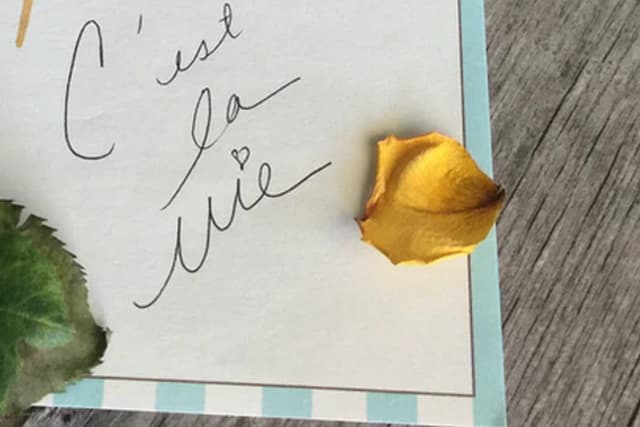 C'est
la
vie